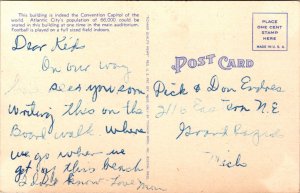 This building is indeed the Convention Capitol of the
world. Atlantic City's population of 66,000 could be
seated in this building at one time in the main auditorium.
Football is played on a full sized field indoors.
PLACE
ONE CENT
STAMP
HERE
MADE IN U. S. A.
POST CARD
Dear Kids
On our way
see you soon
writing this on the
Board walk. where
we go when we
get off this bench
I don't know Love Mum
Dick & Don Endres
2116 Eastern N.E
Grand Rapids
Mich